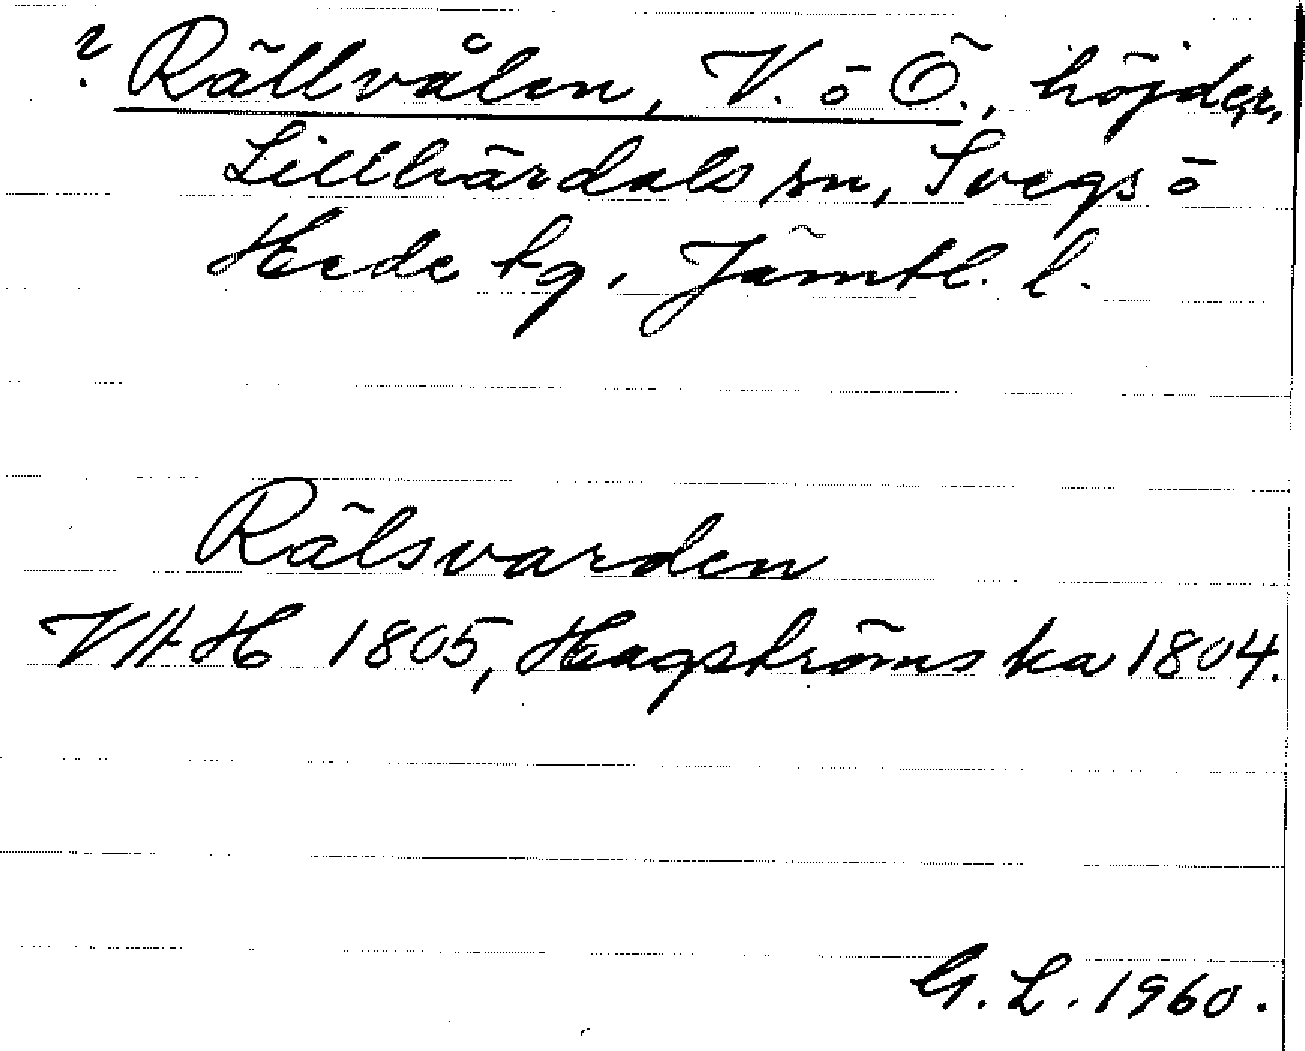 ? Rällvålen, V. o Ö., höjder,
Lillhärdals sn, Svegs o
Hede tg, Jämtl. l.
Rälsvarden
VHH 1805, Hagströms ka 1804.
G. L. 1960.